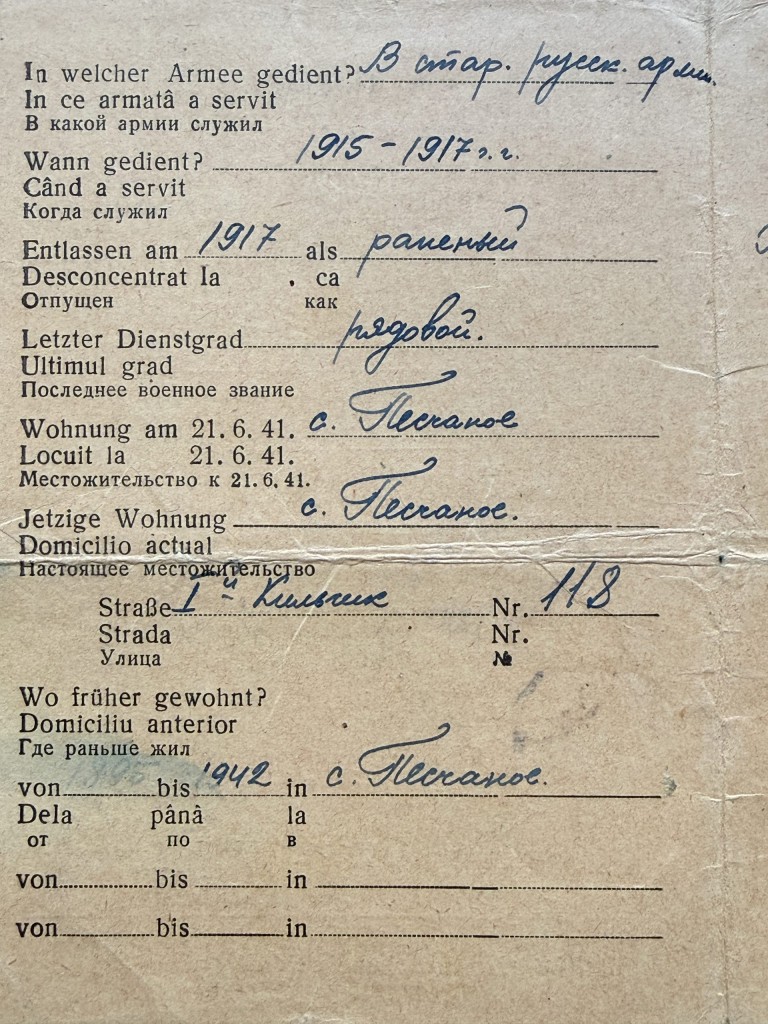 In welcher Armee gedient? В стар. русск. арми.
In ce armatâ a servit
В какой армии служил
Wann gedient? 1915-1917 г.г.
Când a servit
Когда служил
Entlassen am 1917 als раненый
Desconcentrat la . ca
Отпущен как
Letzter Dienstgrad рядовой.
Ultimul grad
Последнее военное звание
Wohnung am 21. 6. 41. с. Песчаное
Locuit la 21. 6. 41.
Местожительство к 21. 6. 41.
Jetzige Wohnung с. Песчаное.
Domicilio actual
Настоящее местожительство
Straße I-й Кильчик Nr. 118
Strada Nr.
Улица №
Wo früher gewohnt?
Domiciliu anterior
Где раньше жил
von bis 1942 in с. Песчаное.
Dela până la
от по в
von bis in
von bis in